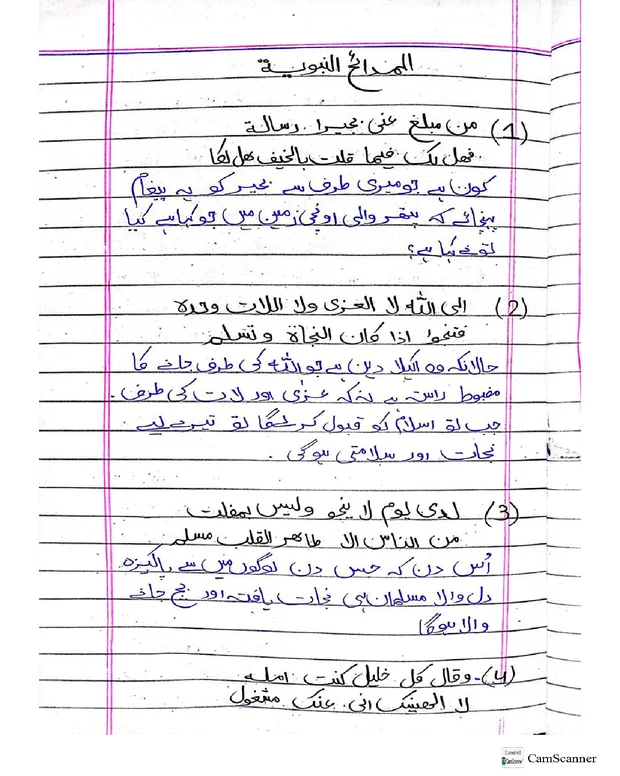 المدائح النبوية
(1) من مبلغ عنی بجیرا رسالة
فهل لک فیما قلت بالخیف هل لکا
کون ہے جو میری طرف سے بجیر کو یہ پیغام
پہنچائے کہ پتھر والی اونچی زمین میں جو کہا ہے کیا
تونے کہا ہے؟
(2) الی الله لا العزی ولا اللات وحده
فتنجو اذا کان النجاة وتسلم
حالانکہ وہ اکیلا دین ہے جو اللہ کی طرف جانے کا
مضبوط راستہ ہے نہ کہ عزٰی اور لات کی طرف.
جب تو اسلام کو قبول کر لے گا تو تیرے لیے
نجات اور سلامتی ہوگی.
(3) لدی یوم لا ینجو ولیس بمفلت
من الناس الا طاهر القلب مسلم
اُس دن کہ جس دن لوگوں میں سے پاکیزہ
دل والا مسلمان ہی نجات یافتہ اور بچ جانے
والا ہوگا
(4). وقال کل خلیل کنت امله
لا الهینک انی عنک مشغول
CamScanner